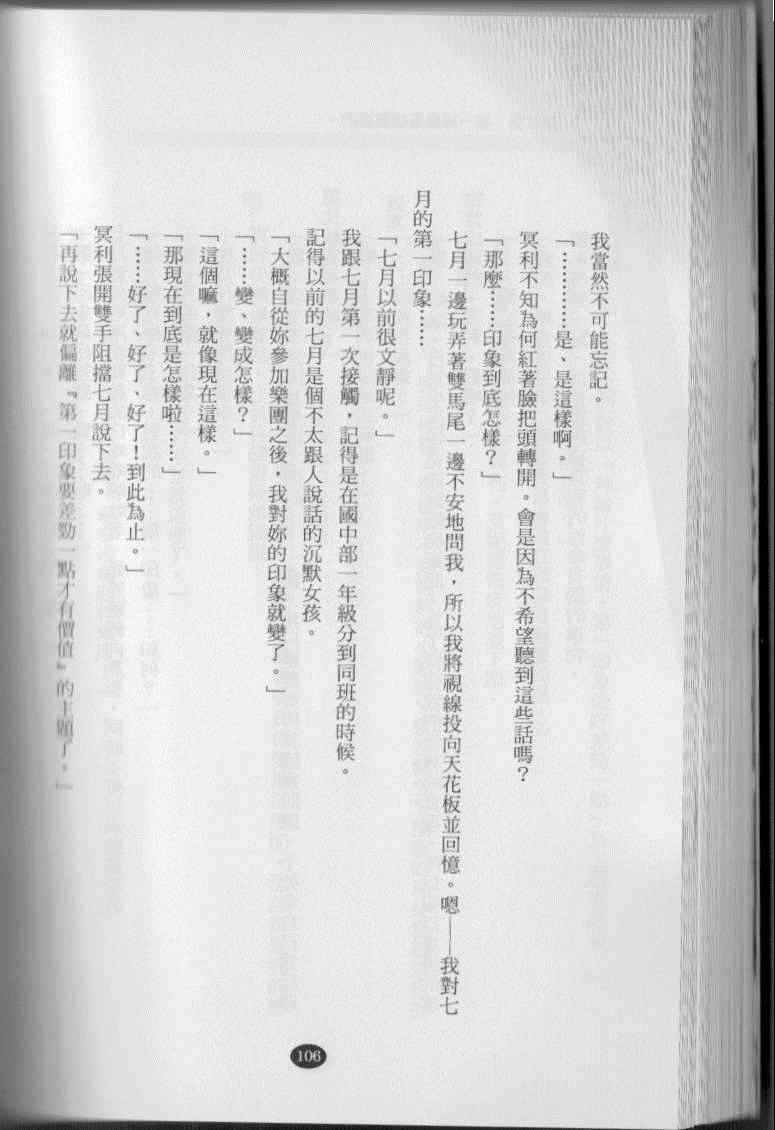 我當然不可能忘記。
「…………是、是這樣啊。」
冥利不知為何紅著臉把頭轉開。會是因為不希望聽到這些話嗎？
「那麼……印象到底怎樣？」
七月一邊玩弄著雙馬尾一邊不安地問我，所以我將視線投向天花板並回憶。嗯——我對七
月的第一印象……
「七月以前很文靜呢。」
我跟七月第一次接觸，記得是在國中部一年級分到同班的時候。
記得以前的七月是個不太跟人說話的沉默女孩。
「大概自從妳參加樂團之後，我對妳的印象就變了。」
「……變、變成怎樣？」
「這個嘛，就像現在這樣。」
「那現在到底是怎樣啦……」
「……好了、好了、好了！到此為止。」
冥利張開雙手阻擋七月說下去。
「再說下去就偏離『第一印象要差勁一點才有價值』的主題了。」
106